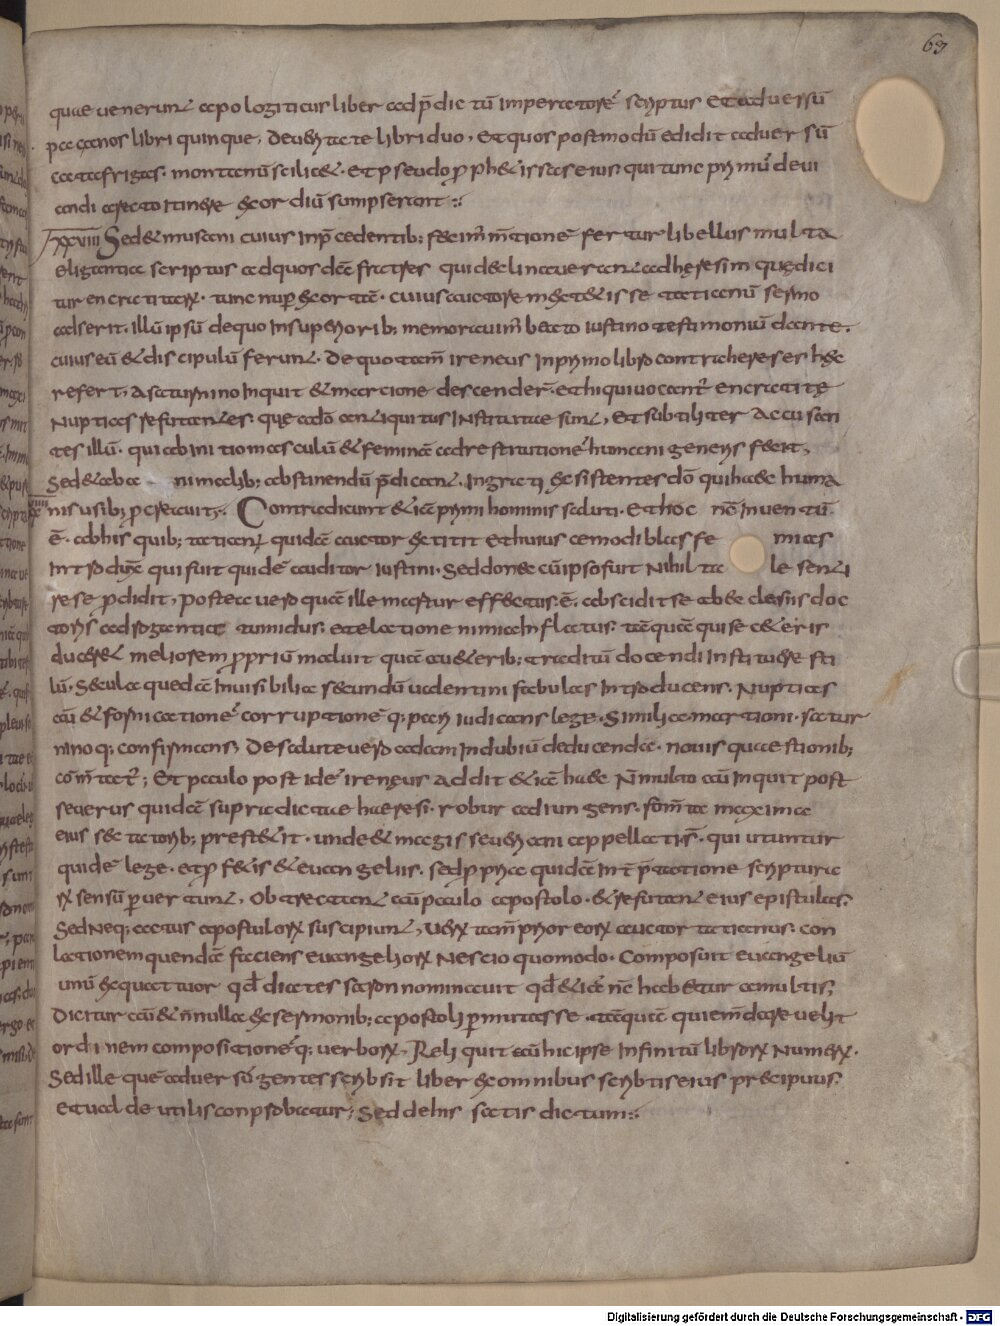 69
quae uenerunt apologiticus liber ad p̄dictū imperatorē scriptus et aduersū
paganos libri quinque, de ueritate libri duo, et quos postmodū edidit aduersū
catafrigas. montanū scilicet. et pseudo p̄phetissas eius. qui tunc primū deui
andi a recto itinere exordiū sumpserant.:
XXVIII Sed et musani cuius in p̄cedentib; fecim̄ m̄tionē fertur libellus multa
eligantia scriptus ad quosdā fratres qui declinauerant ad heresim quę dici
tur encratitarū. tunc nup̄ exortā. cuius auctorē extetisse tatianū sermo
adserit. illū ipsū de quo in superiorib; memorauim̄ beato iustino testimoniū dante.
cuius eū et discipulū ferunt. De quo tam̄ ireneus in primo libro contra hereses hęc
refert, a saturnino inquit et marcione descender̄. et hi qui uocant̄ encratitę
Nuptias refutantes. que a dō antiquitus Institutae sunt, et subtiliter accusan
tes illū. qui ab initio masculū et feminā ad restitutionē humani generis fecit,
Sed et ab a nimalib; abstinendū p̄dicant. Ingrati existentes dō qui haec huma
nis usib; p̄creauit;. Contradicunt et iā primi hominis saluti. et hoc nc̄ inuentū
ē. ab his quib; tatianꝰ quidā auctor extitit et huius cemodi blasfe mias
introduxe qui fuit quidē auditor iustini. Sed donec cū ipso fuit nihil ta le senti
re se p̄didit, postea uero quā ille mart̄ effectus ē. abscidit se ab aeclesiis doc
toris ad rogantia tumidus. et elatione nimia inflatus. tāquā qui se ceteris
ducēret meliorem p̄priū maluit quā aueterib; traditū docendi instituere sti
lū. Secula quedā inuisibilia secundū ualentini fabulas introducens. Nuptias
aū et fornicationē corruptionē q; pari iudicans lege. Simili a martioni. satur
nino q; confirmans, De salute uero adam in dubiū deducenda. nouis quaestionib;
com̄tat̄; Et paulo post idē ireneus addit et iā haec N̄ multo aū inquit post
seuerus quidā supradictae haeresi. robur adiungens. som̄ta maxima
eius sectatorib; prestetit. unde et magis seueriani appellati s̄. qui utuntur
quidē lege. et p̄fetis et euangeliis. sed p̄pria quidā int̄p̄tatione scripturaꝝ
sensū peruertunt, Obtrectant aū paulo apostolo. et refutant eius epistulas.
Sed neq; actus apostuloꝝ suscipiunt, Ueꝝ tam̄ prior eoꝝ auctor tatianus. con
lationem quendā faciens euangelioꝝ nescio quomodo. Composuit euangeliū
unū ex quattuor qd̄ diates saron nominauit qd̄ et iā nc̄ habetur a multis;
Dicitur aū et n̄nulla ex sermonib; apostoli permutasse. tāquā qui em̄dare uelit
ordinem compositionē q; uerboꝝ, Reliquit aū hic ipse infinitū libroꝝ numeꝝ.
Sed ille quē aduersū gentes scribsit liber ex omnibus scribtis eius praecipuus.
et ualde utilis conprobatur; Sed de his satis dictum.:
Digitalisierung gefördert durch die Deutsche Forschungsgemeinschaft - DFG